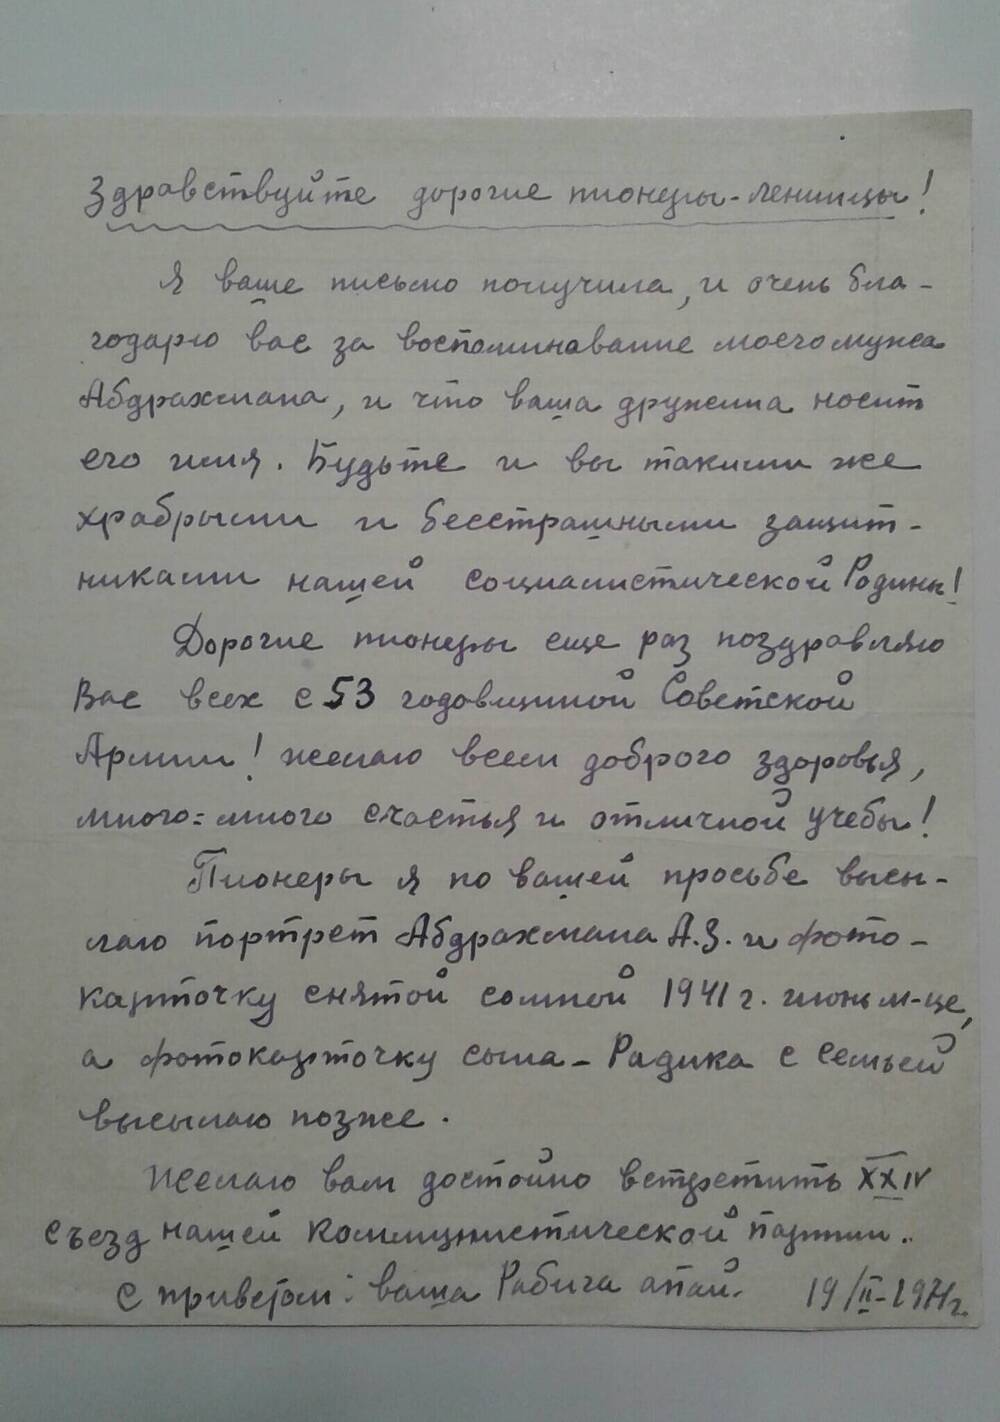 Здравствуйте дорогие пионеры-ленинцы!
Я ваше письмо получила, и очень бла-
годарю вас за воспоминавание моего мужа
Абдрахмана, и что ваша дружина носит
его имя. Будьте и вы такими же
храбрыми и бесстрашными защит-
никами нашей социалистической Родины!
Дорогие пионеры еще раз поздравляю
Вас всех с 53 годовщиной Советской
Армии! желаю всем доброго здоровья,
много=много счастья и отличной учебы!
Пионеры я по вашей просьбе высы-
лаю портрет Абдрахмана А.З. и фото-
карточку снятой сомной 1941 г. июнь м-це,
а фотокарточку сына - Радика с семьей
высылаю позже.
Желаю вам достойно встретить XXIV
съезд нашей Коммунистической партии.
С приветом: ваша Рабига апай. 19/II-1971г.